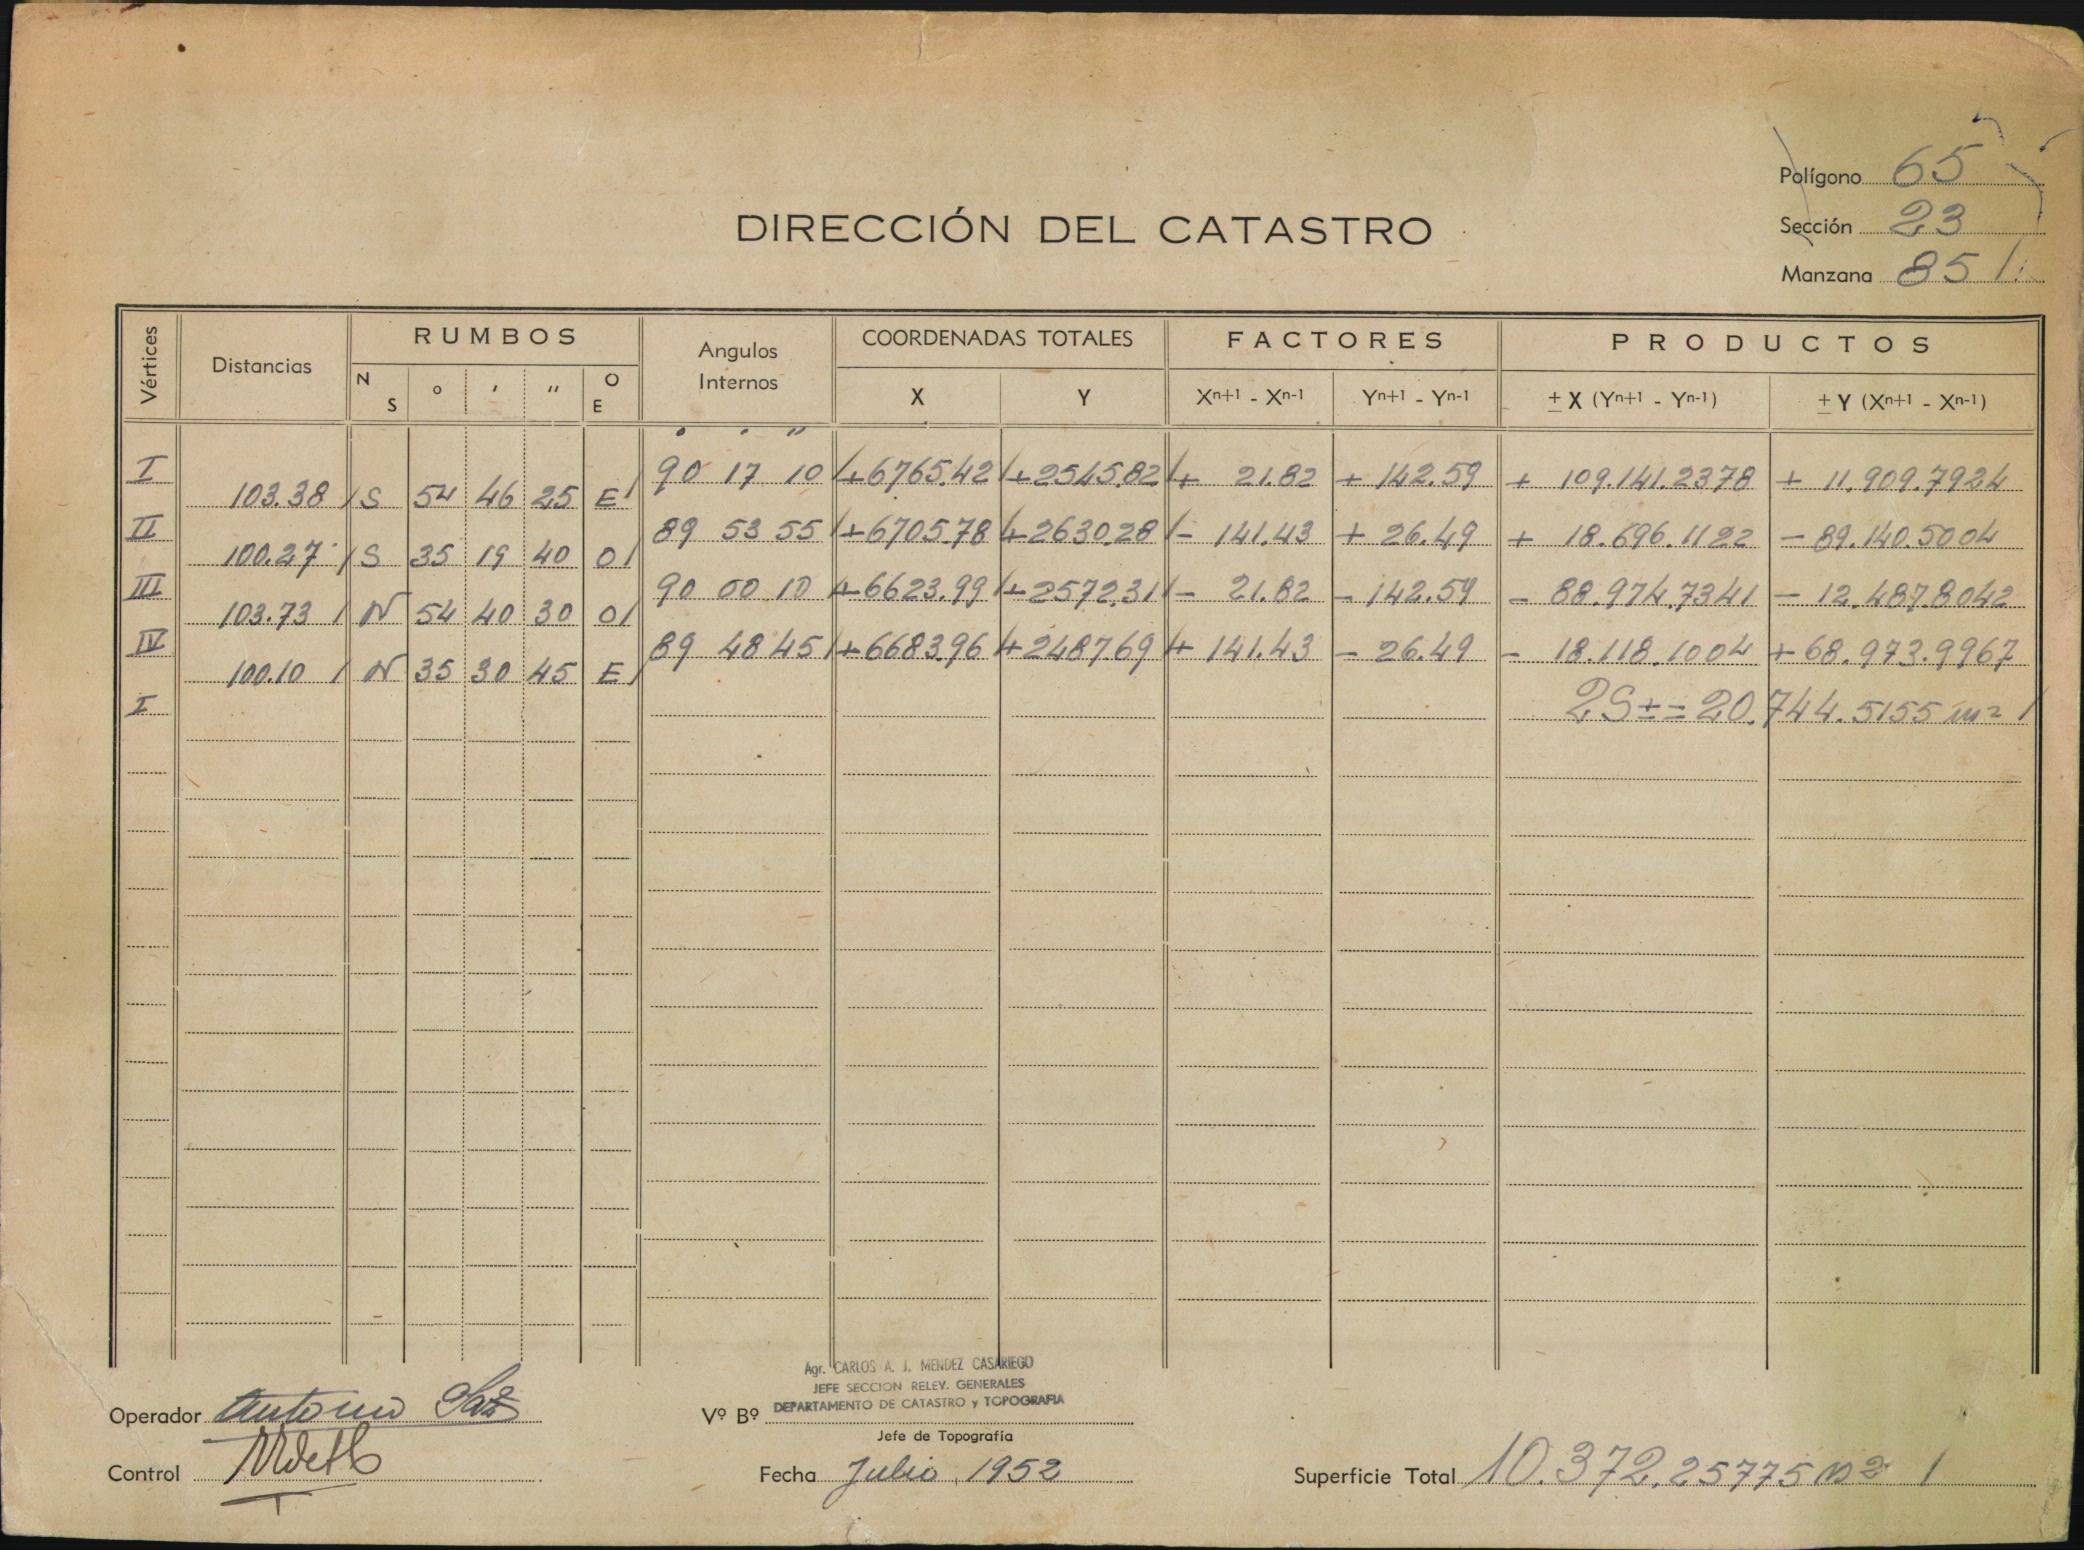 Polígono 65
DIRECCIÓN DEL CATASTRO
Sección 23
Manzana 851
Vértices Distancias RUMBOS N S o ′ ″ O E Angulos Internos COORDENADAS TOTALES X Y FACTORES Xn+1 - Xn-1 Yn+1 - Yn-1 PRODUCTOS ± X (Yn+1 - Yn-1) ± Y (Xn+1 - Xn-1)
° ′ ″
I 90 17 10 +6765.42 +2545.82 + 21.82 + 142.59 + 109.141.2378 + 11.909.7924
103.38 S 54 46 25 E
II 89 53 55 +6705.78 +2630.28 - 141.43 + 26.49 + 18.696.1122 - 89.140.5004
100.27 S 35 19 40 O
III 90 00 10 +6623.99 +2572.31 - 21.82 - 142.59 - 88.974.7341 - 12.487.8042
103.73 N 54 40 30 O
IV 89 48 45 +6683.96 +2487.69 + 141.43 - 26.49 - 18.118.1004 + 68.973.9967
100.10 N 35 30 45 E
I 2S ± = 20.744.5155 m2
Agr. CARLOS A. J. MENDEZ CASARIEGO
JEFE SECCION RELEV. GENERALES
DEPARTAMENTO DE CATASTRO y TOPOGRAFIA
Operador Antonio
Vº Bº
Jefe de Topografía
Control
Fecha Julio, 1952
Superficie Total 10.372.25775 m2